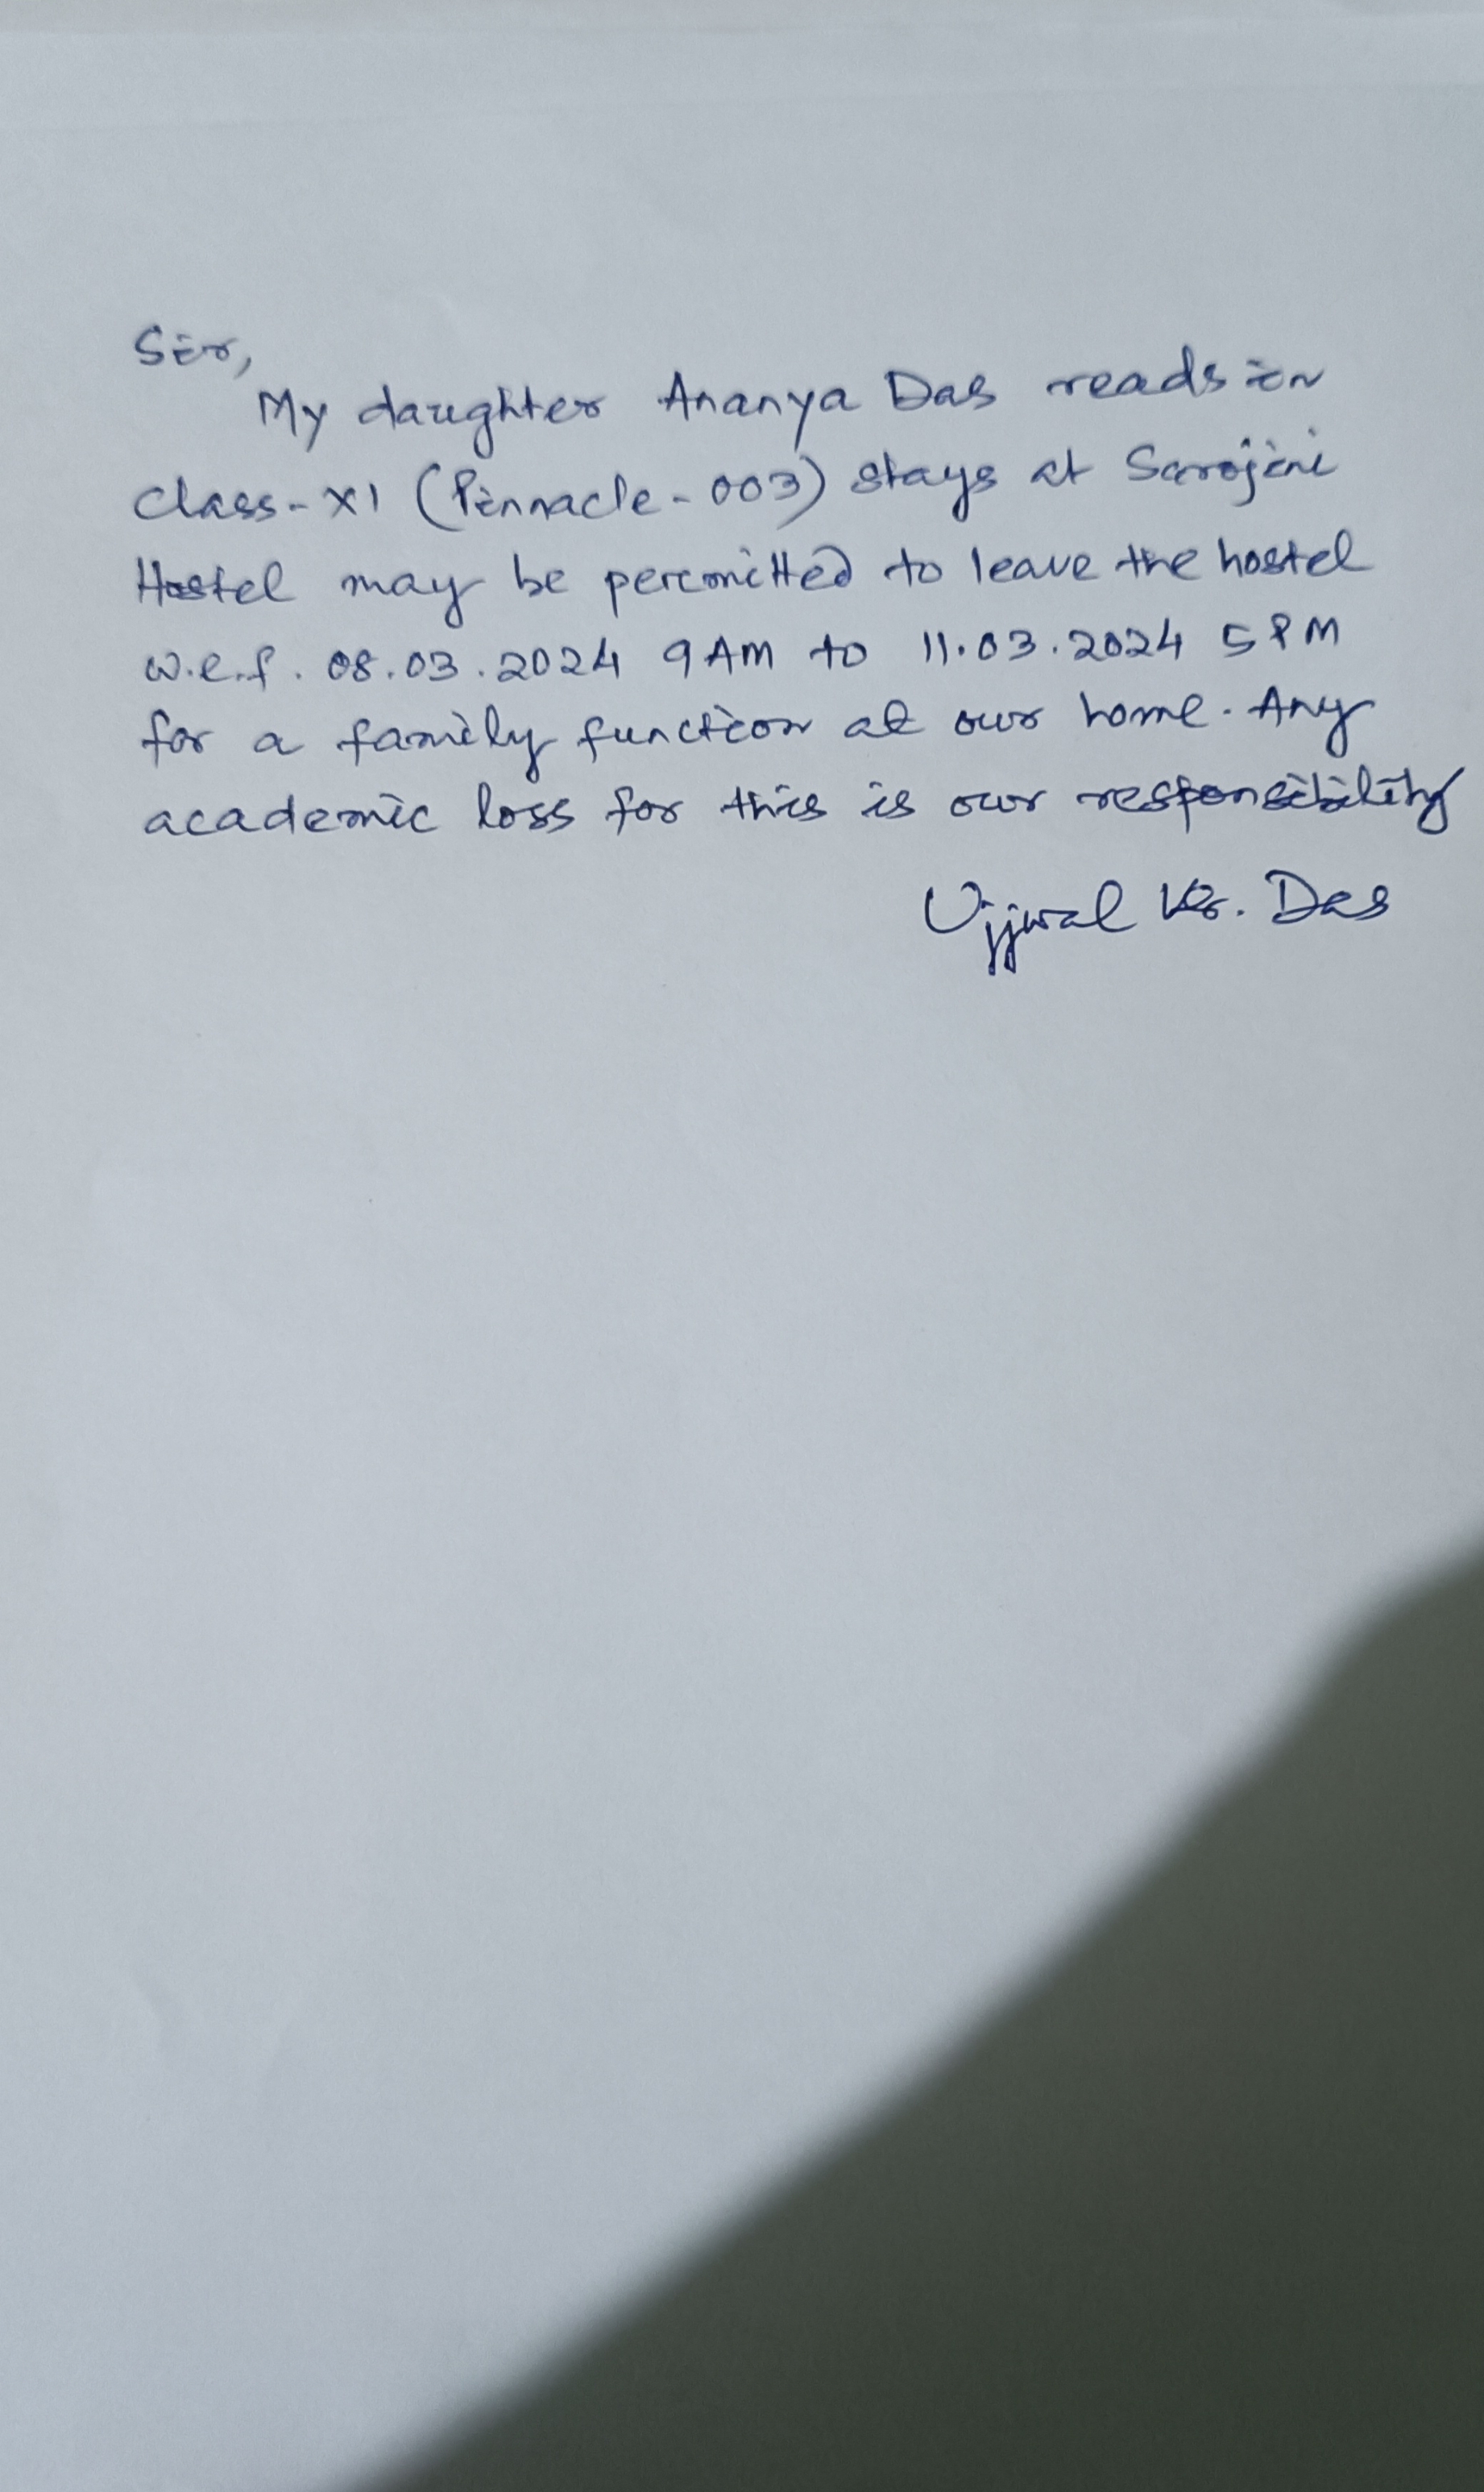 Sir,
My daughter Ananya Das reads in
class-XI (Pinnacle-003) stays at Sarojini
Hostel may be permitted to leave the hostel
w.e.f. 08.03.2024 9 AM to 11.03.2024 5 PM
for a family function at our home. Any
academic loss for this is our responsibility
Ujjwal Kr. Das